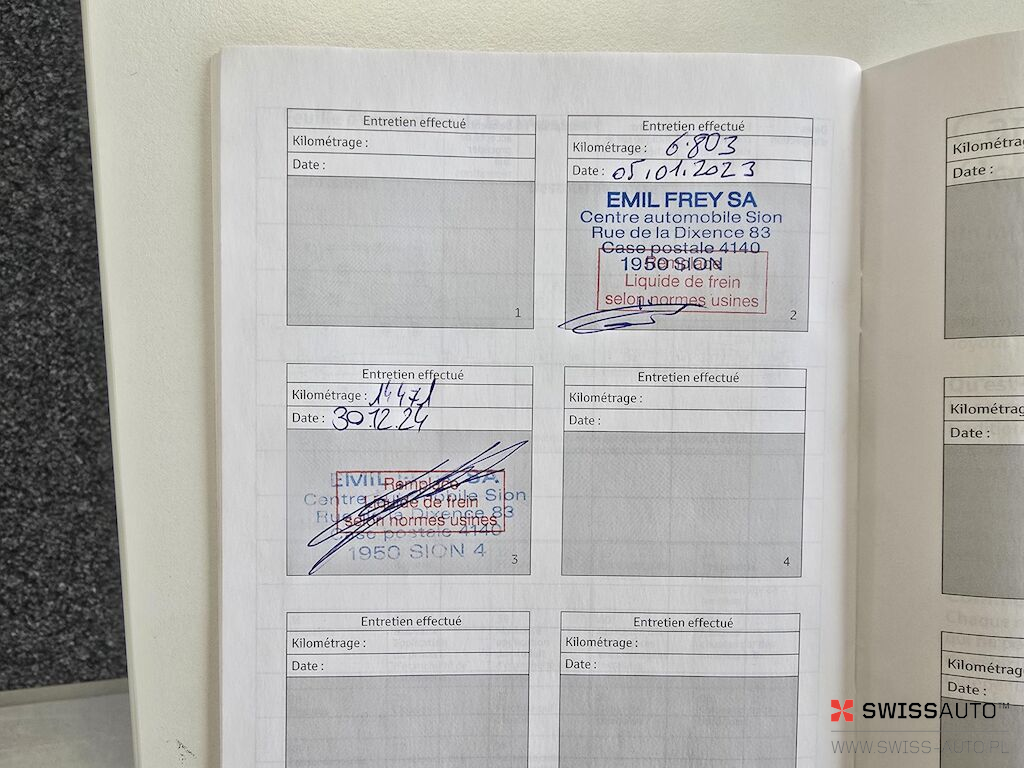 Entretien effectué
Kilométrage :
Date :
1
Entretien effectué
Kilométrage : 6.803
Date : 05.01.2023
EMIL FREY SA
Centre automobile Sion
Rue de la Dixence 83
Case postale 4140
1950 SION
Remplacé
Liquide de frein
selon normes usines
2
Entretien effectué
Kilométrage : 14471
Date : 30.12.24
EMIL FREY SA
Centre automobile Sion
Rue de la Dixence 83
Case postale 4140
1950 SION 4
Remplacé
Liquide de frein
selon normes usines
3
Entretien effectué
Kilométrage :
Date :
4
Entretien effectué
Kilométrage :
Date :
Entretien effectué
Kilométrage :
Date :
Kilométra
Date :
Kilométra
Date :
Kilométra
Date :
SWISSAUTO™
WWW.SWISS-AUTO.PL